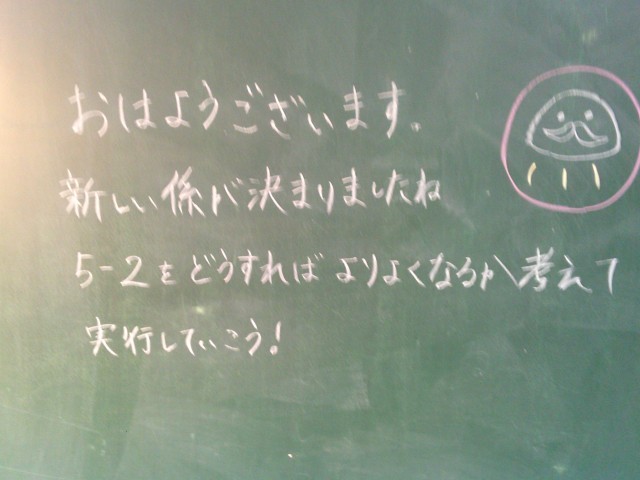 おはようございます。
新しい係が決まりましたね
5-2をどうすればよりよくなるか考えて
実行していこう!